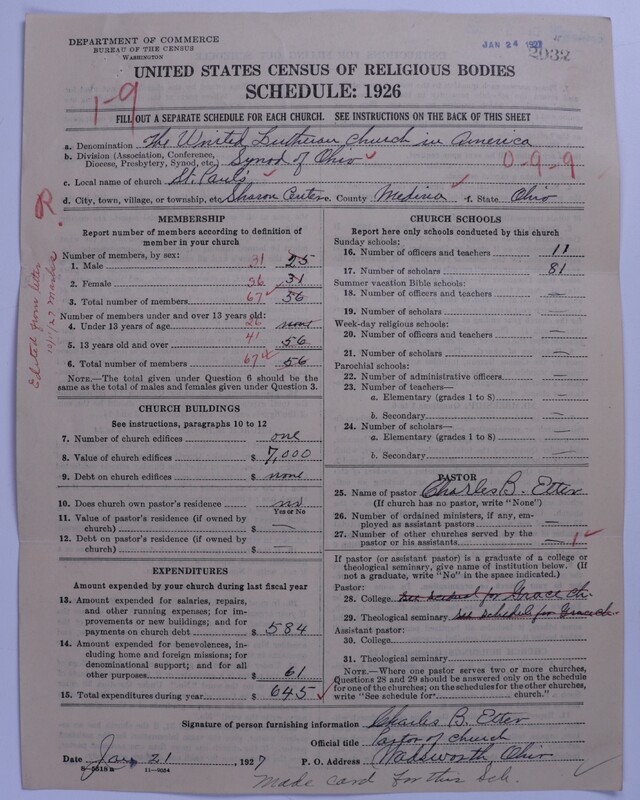 DEPARTMENT OF COMMERCE
BUREAU OF THE CENSUS
WASHINGTON
JAN 24 1927
2032
UNITED STATES CENSUS OF RELIGIOUS BODIES
SCHEDULE: 1926
1-9
FILL OUT A SEPARATE SCHEDULE FOR EACH CHURCH. SEE INSTRUCTIONS ON THE BACK OF THIS SHEET
a. Denomination The United Lutheran Church in America
b. Division (Association, Conference, Diocese, Presbytery, Synod, etc.) Synod of Ohio
0-9-9
c. Local name of church St. Paul's
d. City, town, village, or township, etc. Sharon Center e. County Medina f. State Ohio
MEMBERSHIP
Report number of members according to definition of
member in your church
Number of members, by sex:
1. Male 31 25
2. Female 36 31
3. Total number of members 67 56
Number of members under and over 13 years old:
4. Under 13 years of age 26 none
5. 13 years old and over 41 56
6. Total number of members 67 56
NOTE.—The total given under Question 6 should be
the same as the total of males and females given under Question 3.
Edited from letter
CHURCH BUILDINGS
See instructions, paragraphs 10 to 12
7. Number of church edifices one
8. Value of church edifices $ 7,000
9. Debt on church edifices $ none
10. Does church own pastor's residence? no
Yes or No
11. Value of pastor's residence (if owned by
church) $ —
12. Debt on pastor's residence (if owned by
church) $ —
EXPENDITURES
Amount expended by your church during last fiscal year
13. Amount expended for salaries, repairs,
and other running expenses; for im-
provements or new buildings; and for
payments on church debt $ 584
14. Amount expended for benevolences, in-
cluding home and foreign missions; for
denominational support; and for all
other purposes $ 61
15. Total expenditures during year $ 645
CHURCH SCHOOLS
Report here only schools conducted by this church
Sunday schools:
16. Number of officers and teachers 11
17. Number of scholars 81
Summer vacation Bible schools:
18. Number of officers and teachers —
19. Number of scholars —
Week-day religious schools:
20. Number of officers and teachers —
21. Number of scholars —
Parochial schools:
22. Number of administrative officers —
23. Number of teachers—
a. Elementary (grades 1 to 8) —
b. Secondary —
24. Number of scholars—
a. Elementary (grades 1 to 8) —
b. Secondary —
PASTOR
25. Name of pastor Charles B. Etter
(If church has no pastor, write "None")
26. Number of ordained ministers, if any, em-
ployed as assistant pastors —
27. Number of other churches served by the
pastor or his assistants — 1
If pastor (or assistant pastor) is a graduate of a college or
theological seminary, give name of institution below. (If
not a graduate, write "No" in the space indicated.)
Pastor:
28. College See schedule for Grace Ch.
29. Theological seminary See schedule for Grace Ch.
Assistant pastor:
30. College
31. Theological seminary
NOTE.—Where one pastor serves two or more churches,
Questions 28 and 29 should be answered only on the schedule
for one of the churches; on the schedules for the other churches,
write "See schedule for church."
Signature of person furnishing information Charles B. Etter
Official title Pastor of church
Date Jan 21, 1927 P. O. Address Wadsworth, Ohio
11—9084
Made card for this Sch.